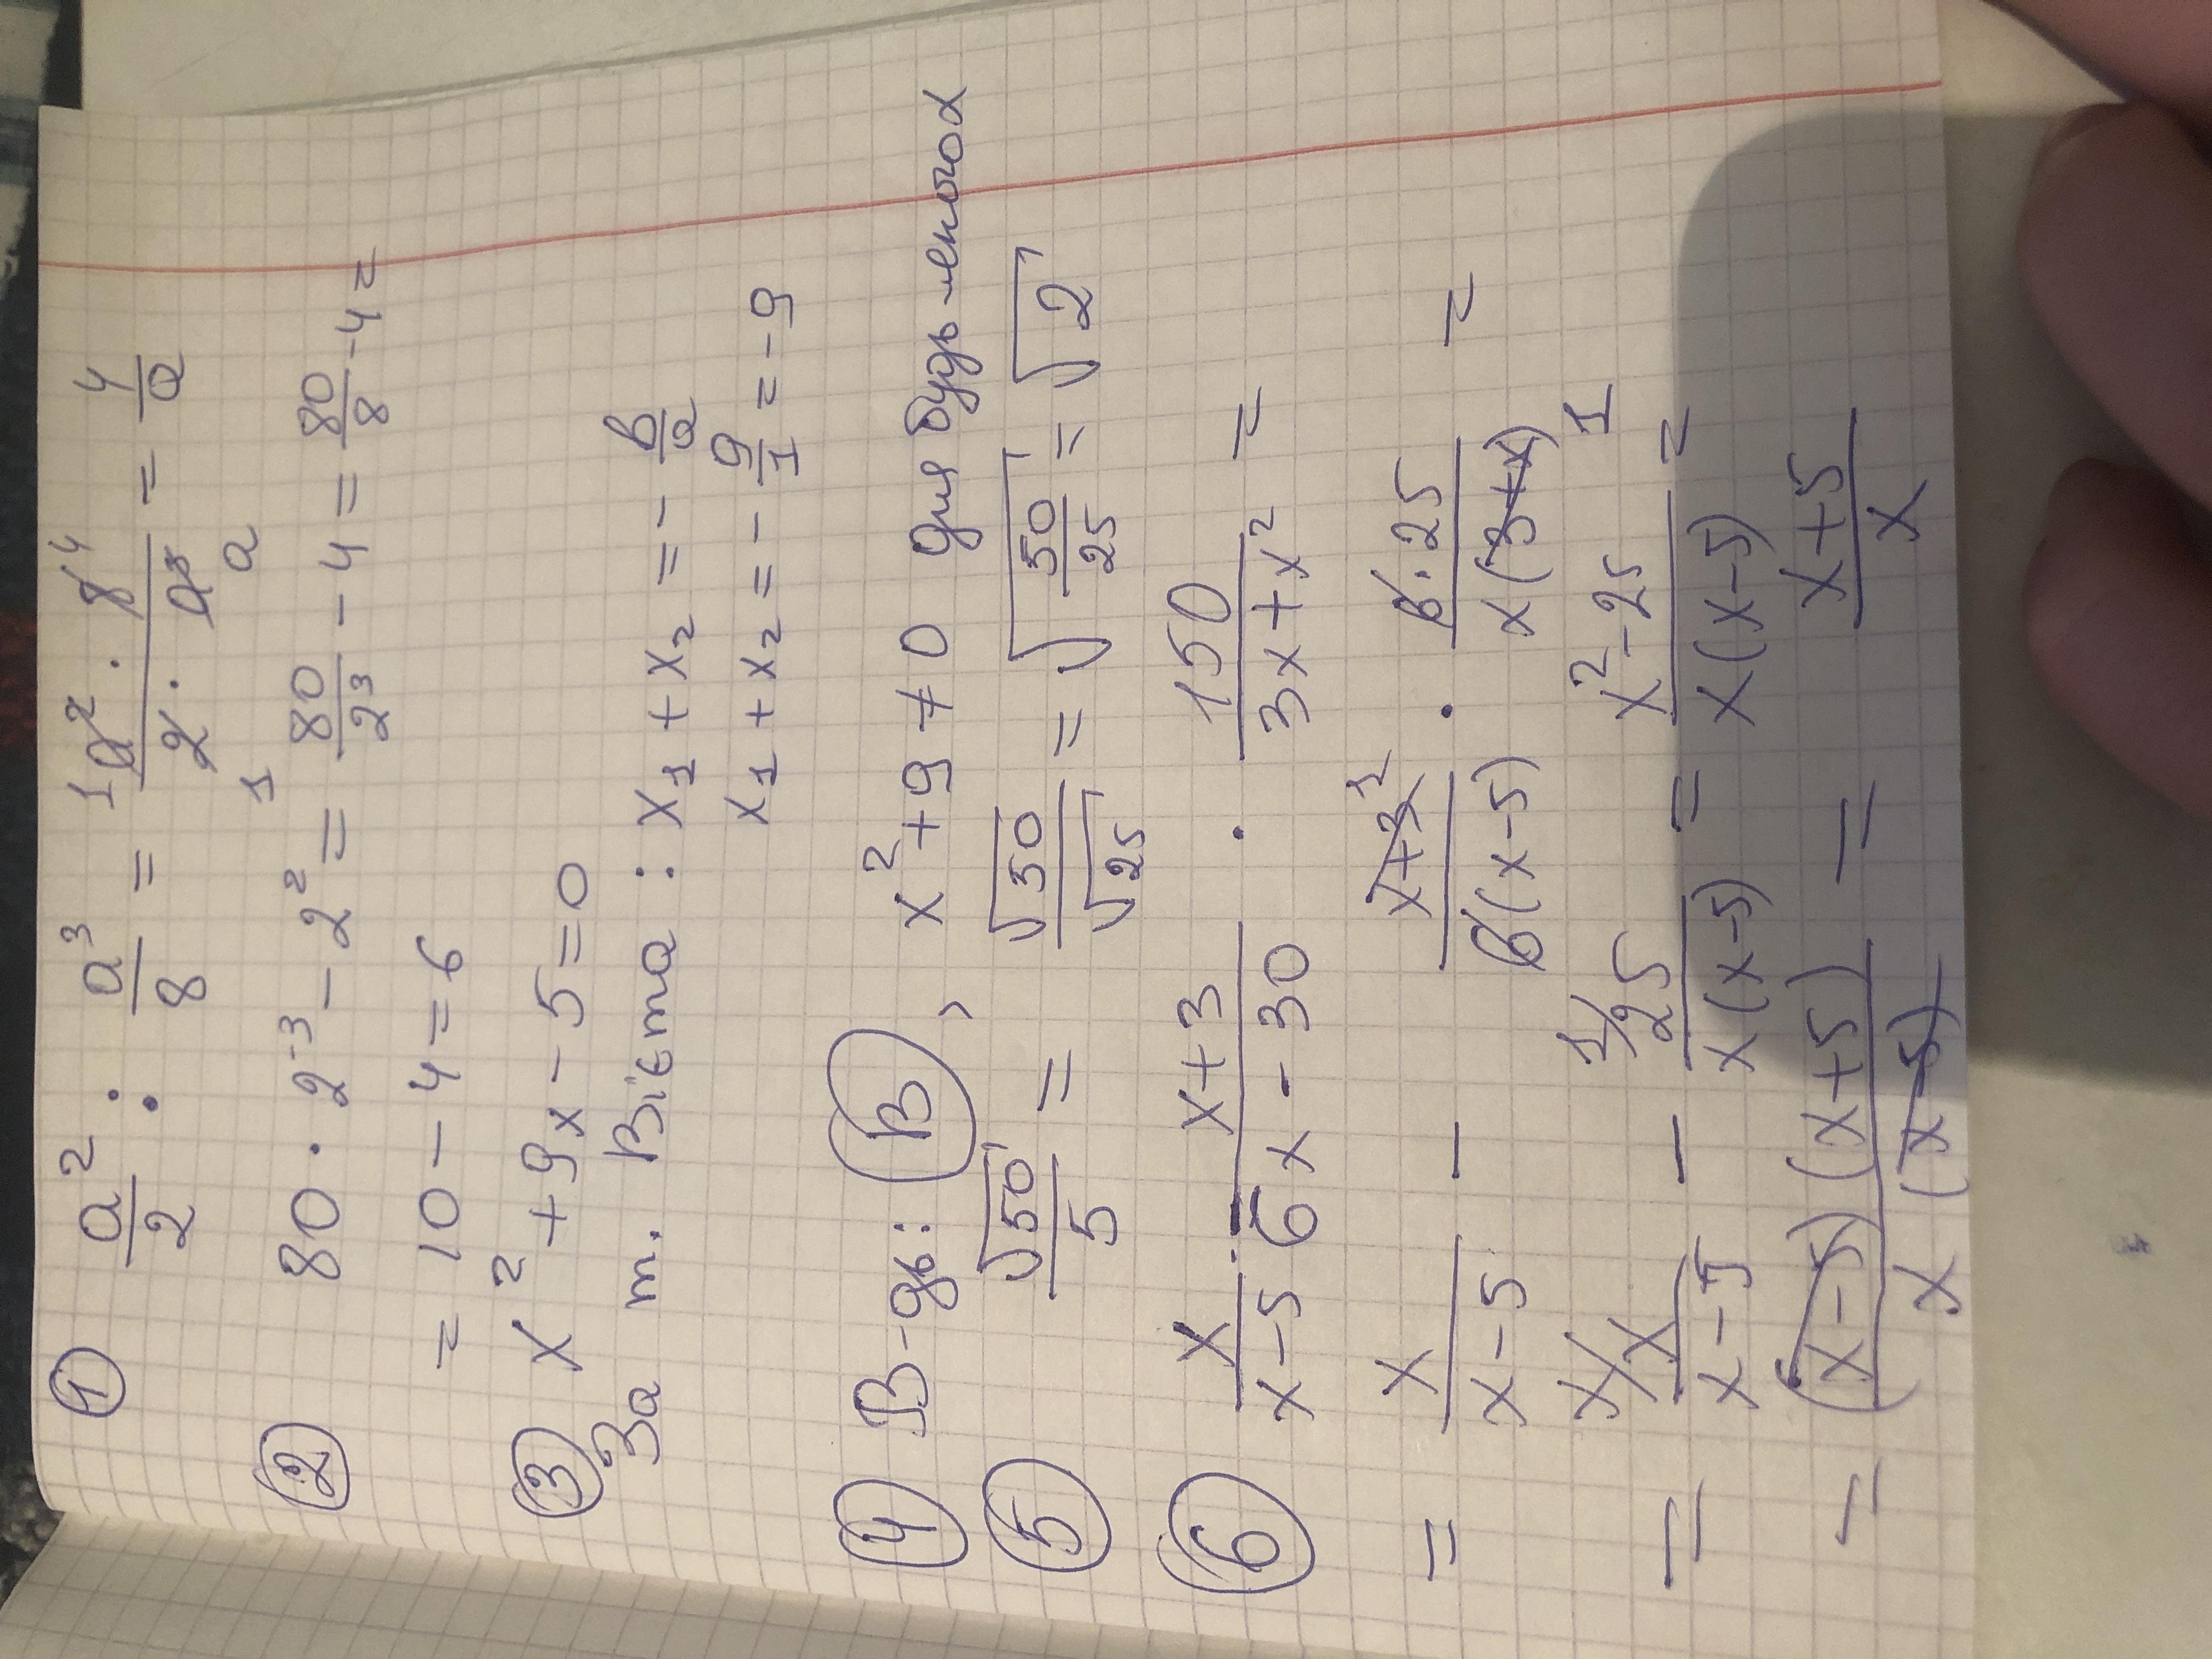 ① a²/2 : a³/8 = a² · 8/2 · a³ = 4/a
② 80 · 2⁻³ - 2² = 80/2³ - 4 = 80/8 - 4 =
= 10 - 4 = 6
③ x² + 9x - 5 = 0
За т. Вієта : x₁ + x₂ = - b/a
x₁ + x₂ = - 9/1 = - 9
④ В-дь: В, x² + 9 ≠ 0 для будь-якого x
⑤ √50/5 = √50/√25 = √50/25 = √2
⑥ x/x-5 - x+3/6x-30 · 150/3x+x² =
= x/x-5 - x+3/6(x-5) · 6·25/x(3+x) =
= x/x-5 - 25/x(x-5) = x²-25/x(x-5) =
= (x-5)(x+5)/x(x-5) = x+5/x